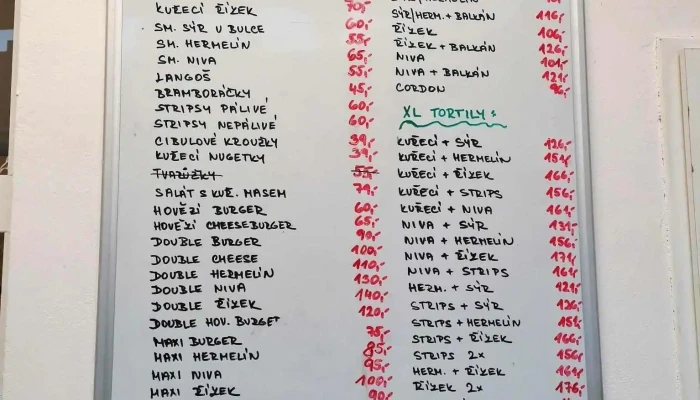 KUŘECÍ ŘÍZEK 70,-
SM. SÝR V BULCE 60,-
SM. HERMELÍN 55,-
SM. NIVA 65,-
LANGOŠ 55,-
BRAMBORÁČKY 45,-
STRIPSY PÁLIVÉ 60,-
STRIPSY NEPÁLIVÉ 60,-
CIBULOVÉ KROUŽKY 39,-
KUŘECÍ NUGETKY 39,-
TVARŮŽKY 55,-
SALÁT S KUŘ. MASEM 79,-
HOVĚZÍ BURGER 60,-
HOVĚZÍ CHEESEBURGER 65,-
DOUBLE BURGER 90,-
DOUBLE CHEESE 100,-
DOUBLE HERMELÍN 110,-
DOUBLE NIVA 130,-
DOUBLE ŘÍZEK 140,-
DOUBLE HOV. BURGET 120,-
MAXI BURGER 75,-
MAXI HERMELÍN 85,-
MAXI NIVA 95,-
MAXI ŘÍZEK 100,-
90,-
SÝR/HERM. + BALKÁN 116,-
ŘÍZEK 106,-
ŘÍZEK + BALKÁN 126,-
NIVA 101,-
NIVA + BALKÁN 121,-
CORDON 96,-
XL TORTILY:
KUŘECÍ + SÝR 126,-
KUŘECÍ + HERMELÍN 151,-
KUŘECÍ + ŘÍZEK 166,-
KUŘECÍ + STRIPS 156,-
KUŘECÍ + NIVA 161,-
NIVA + SÝR 131,-
NIVA + HERMELÍN 156,-
NIVA + ŘÍZEK 171,-
NIVA + STRIPS 161,-
HERM. + SÝR 121,-
STRIPS + SÝR 126,-
STRIPS + HERMELÍN 151,-
STRIPS + ŘÍZEK 166,-
STRIPS 2x 156,-
HERM. + ŘÍZEK 161,-
ŘÍZEK 2x 176,-